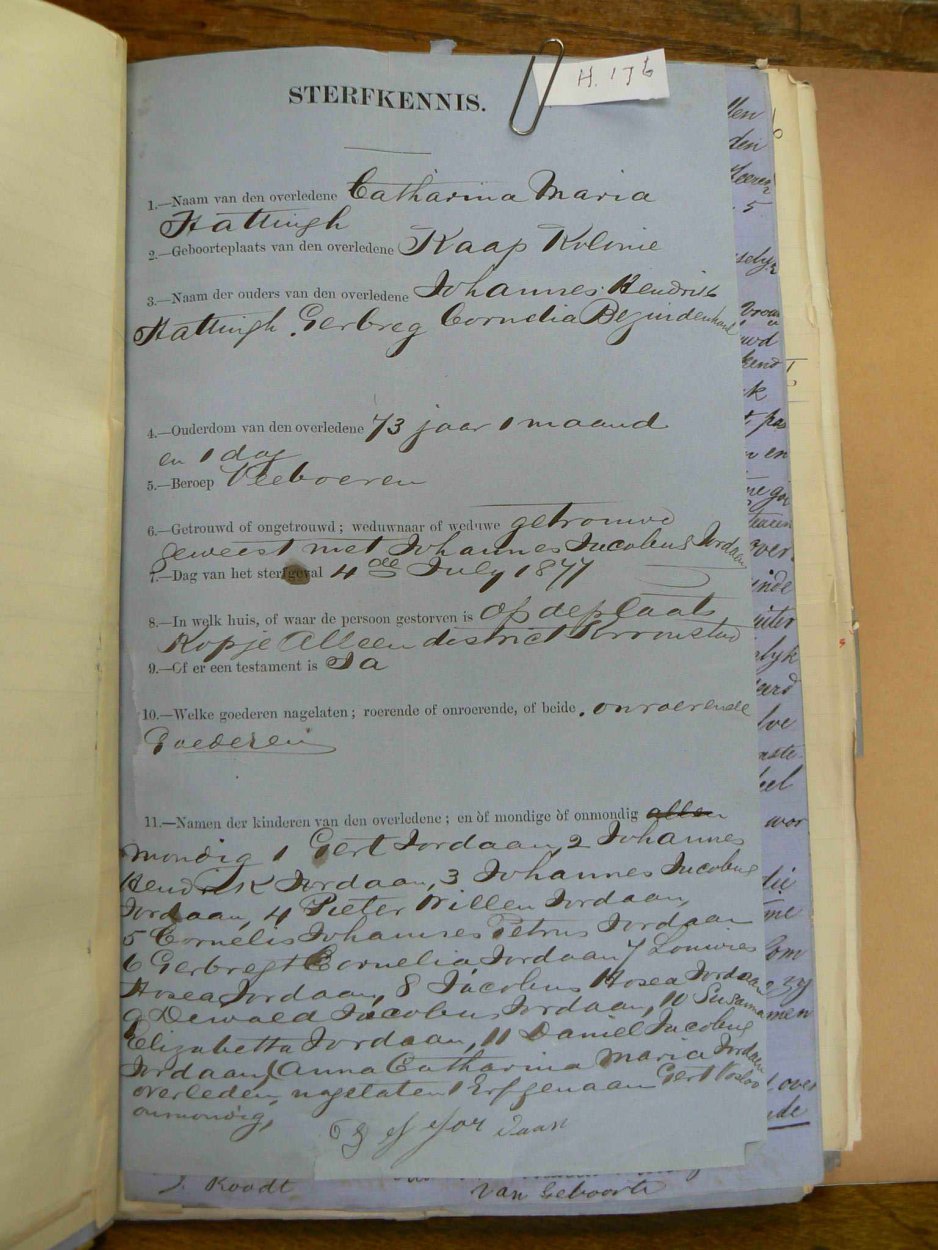 H. 176
STERFKENNIS.
1.—Naam van den overledene Catharina Maria
Hattingh
2.—Geboorteplaats van den overledene Kaap Kolinie
3.—Naam der ouders van den overledene Johannes Hendrik
Hattingh Gerbreg Cornelia Bezuidenhout
4.—Ouderdom van den overledene 73 jaar 1 maand
en 1 dag
5.—Beroep Veeboeren
6.—Getrouwd of ongetrouwd; weduwnaar of weduwe getrouwd
geweest met Johannes Jacobus Jordaan
7.—Dag van het sterfgeval 4de July 1877
8.—In welk huis, of waar de persoon gestorven is op de plaats
Kopje Alleen district Kroonstad
9.—Of er een testament is Ja
10.—Welke goederen nagelaten; roerende of onroerende, of beide. onroerende
Goederen
11.—Namen der kinderen van den overledene; en òf mondige òf onmondig allen
mondig 1 Gert Jordaan, 2 Johannes
Hendrik Jordaan, 3 Johannes Jacobus
Jordaan, 4 Pieter Willem Jordaan,
5 Cornelis Johannes Petrus Jordaan
6 Gerbregt Cornelia Jordaan 7 Louwies
Hosea Jordaan, 8 Jacobus Hosea Jordaan
9 Dewald Jacobus Jordaan, 10 Susanna
Elizabetta Jordaan, 11 Daniel Jacobus
Jordaan, (Anna Catharina Maria Jordaan
overleden, nagelaten 1 Erfgenaam Gert Vosloo
onmondig,
J. Roodt
van Geboorte